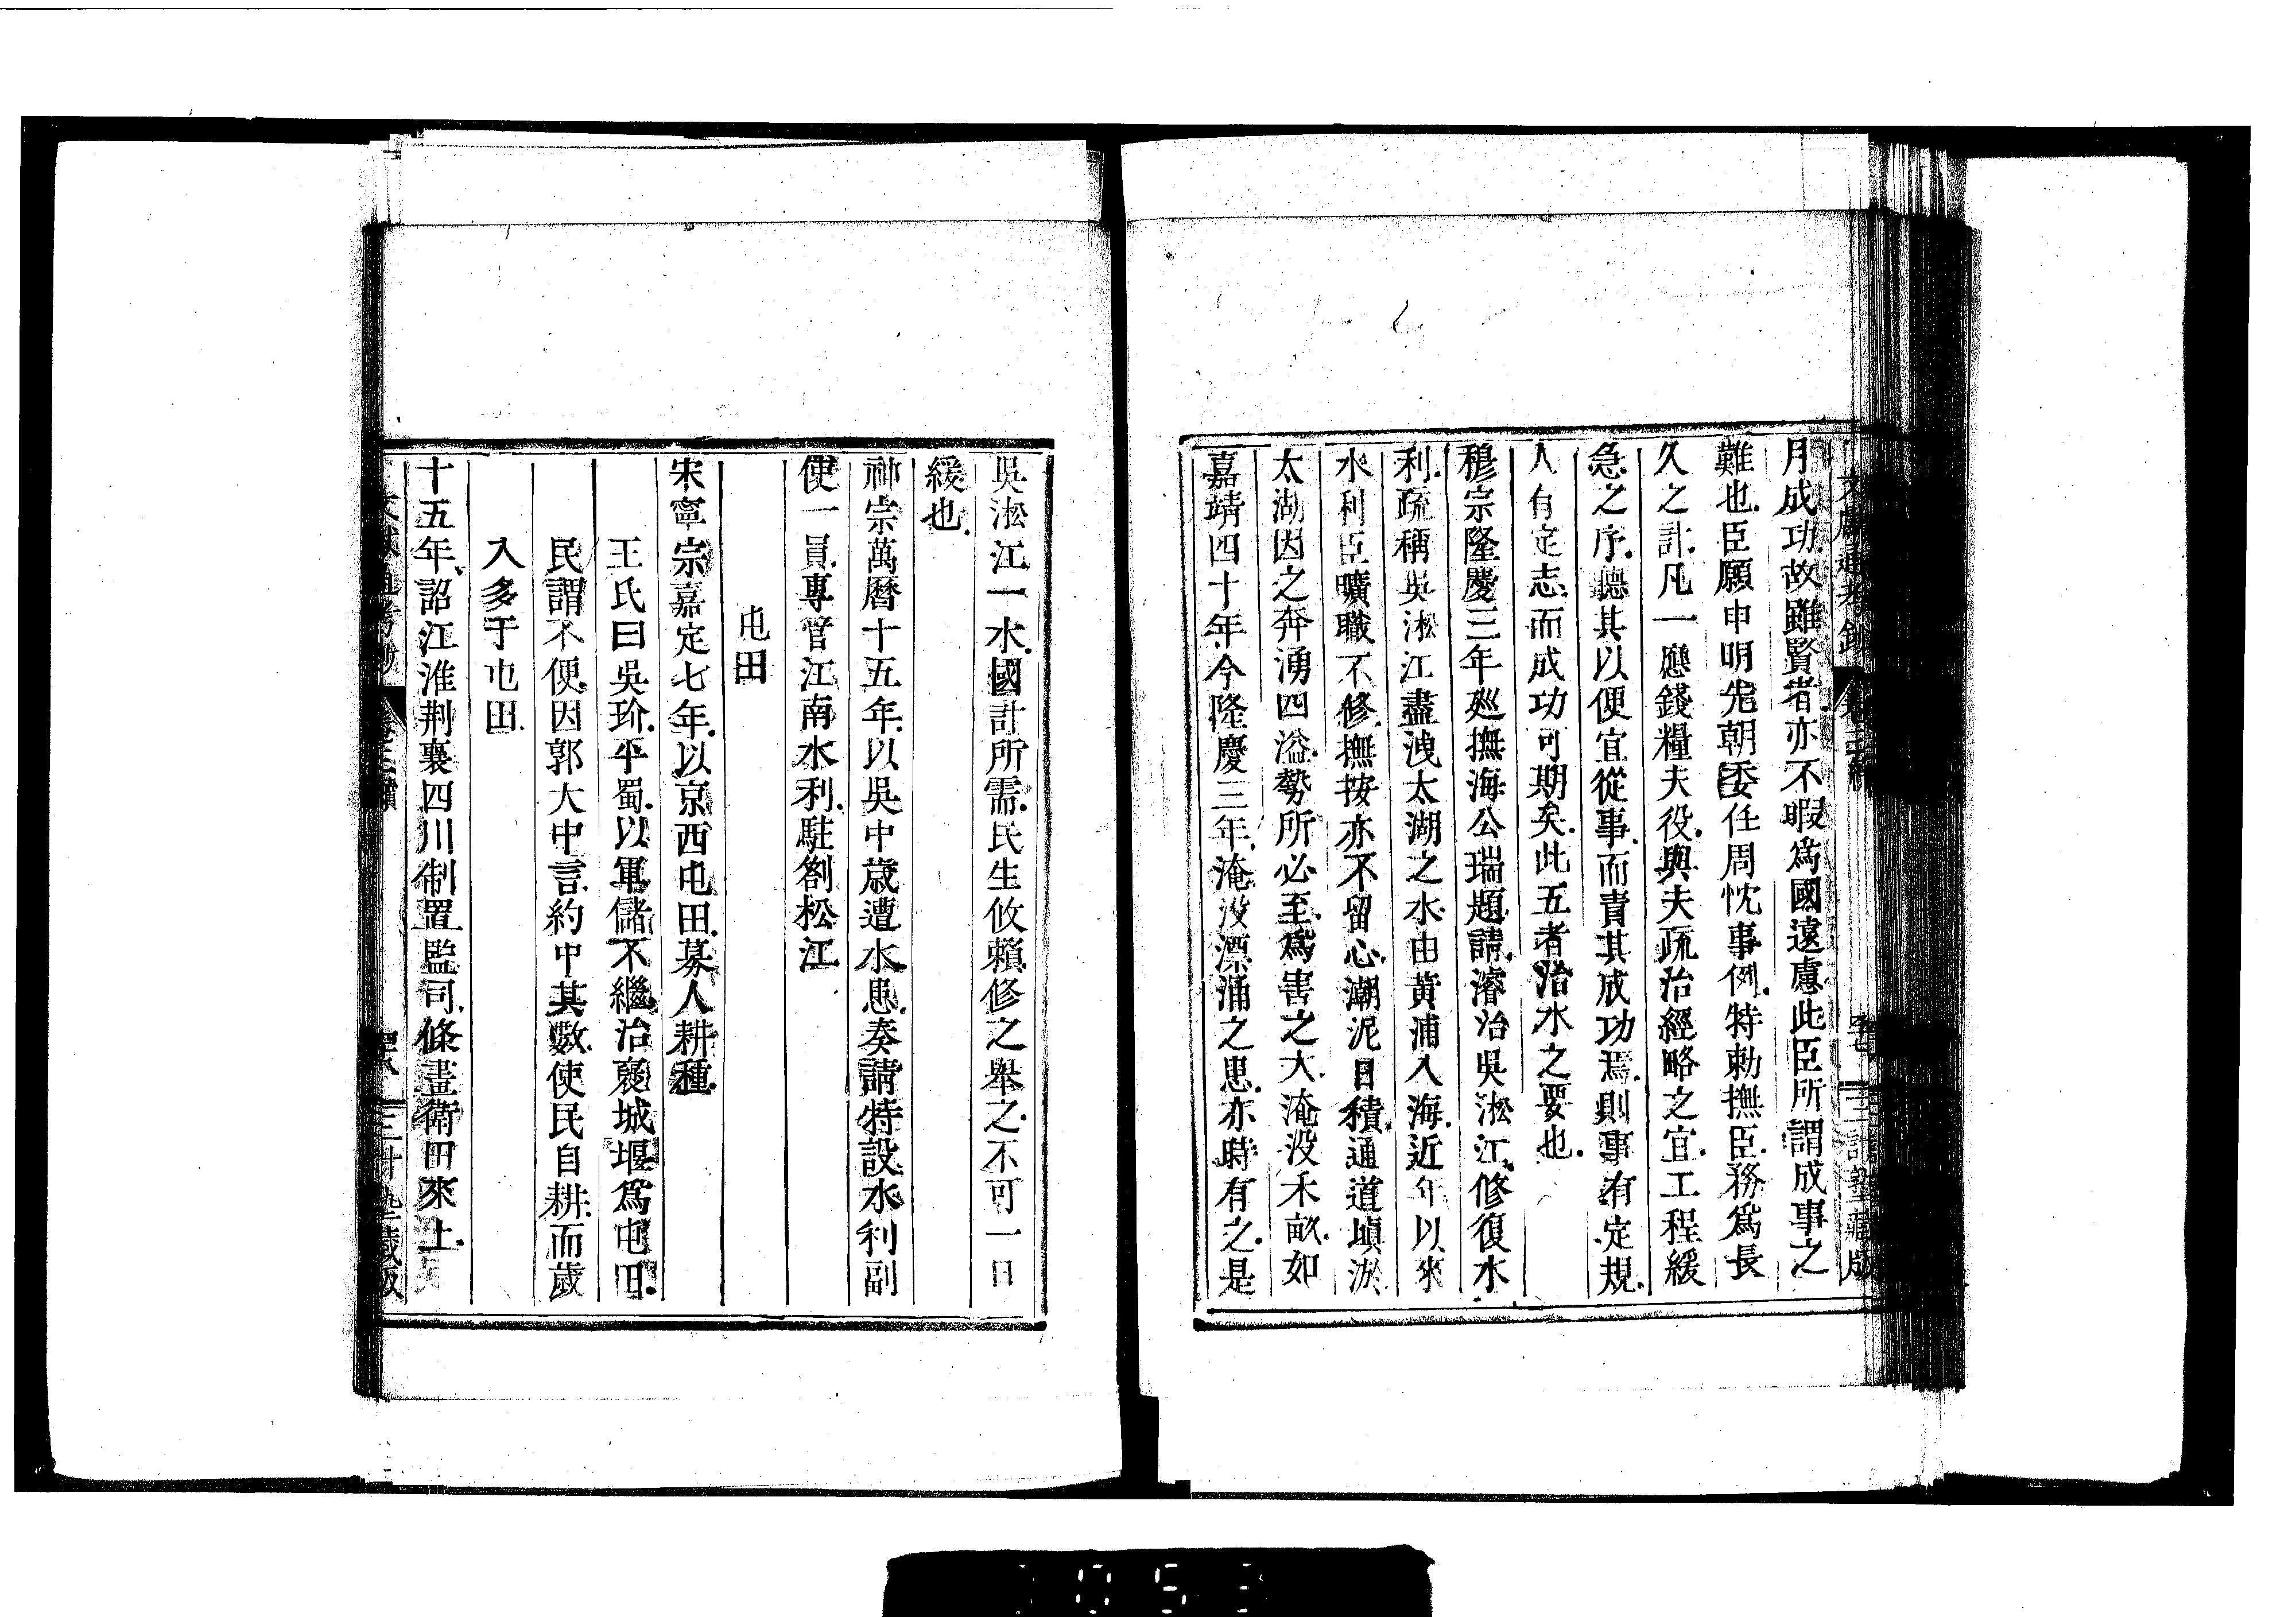 月成功故雖賢者亦不暇爲國遠慮此臣所謂成事之
難也臣願申明先朝委任周忱事例特勅撫臣務爲長
久之計凡一應錢糧夫役與夫疏治經略之宜工程緩
急之序聽其以便宜從事而責其成功焉則事有定規
人有定志而成功可期矣此五者治水之要也
穆宗隆慶三年廵撫海公瑞題請濬治吳淞江修復水
利疏稱吳淞江盡洩太湖之水由黃浦入海近年以來
水利臣曠職不修撫按亦不留心潮泥日積通道塡淤
太湖因之奔湧四溢勢所必至爲害之大淹没禾畝如
嘉靖四十年今隆慶三年淹没漂涌之患亦時有之是
吳淞江一水國計所需民生攸賴修之舉之不可一日
緩也
神宗萬曆十五年以吳中歲遭水患奏請特設水利副
使一員專管江南水利駐劄松江
屯田
宋寧宗嘉定七年以京西屯田募人耕種
王氏曰吳玠平蜀以軍儲不繼治褒城堰爲屯田
民謂不便因郭大中言約中其數使民自耕而歲
入多于屯田
十五年詔江淮荆襄四川制置監司條畫衛田來上
文獻通考鈔